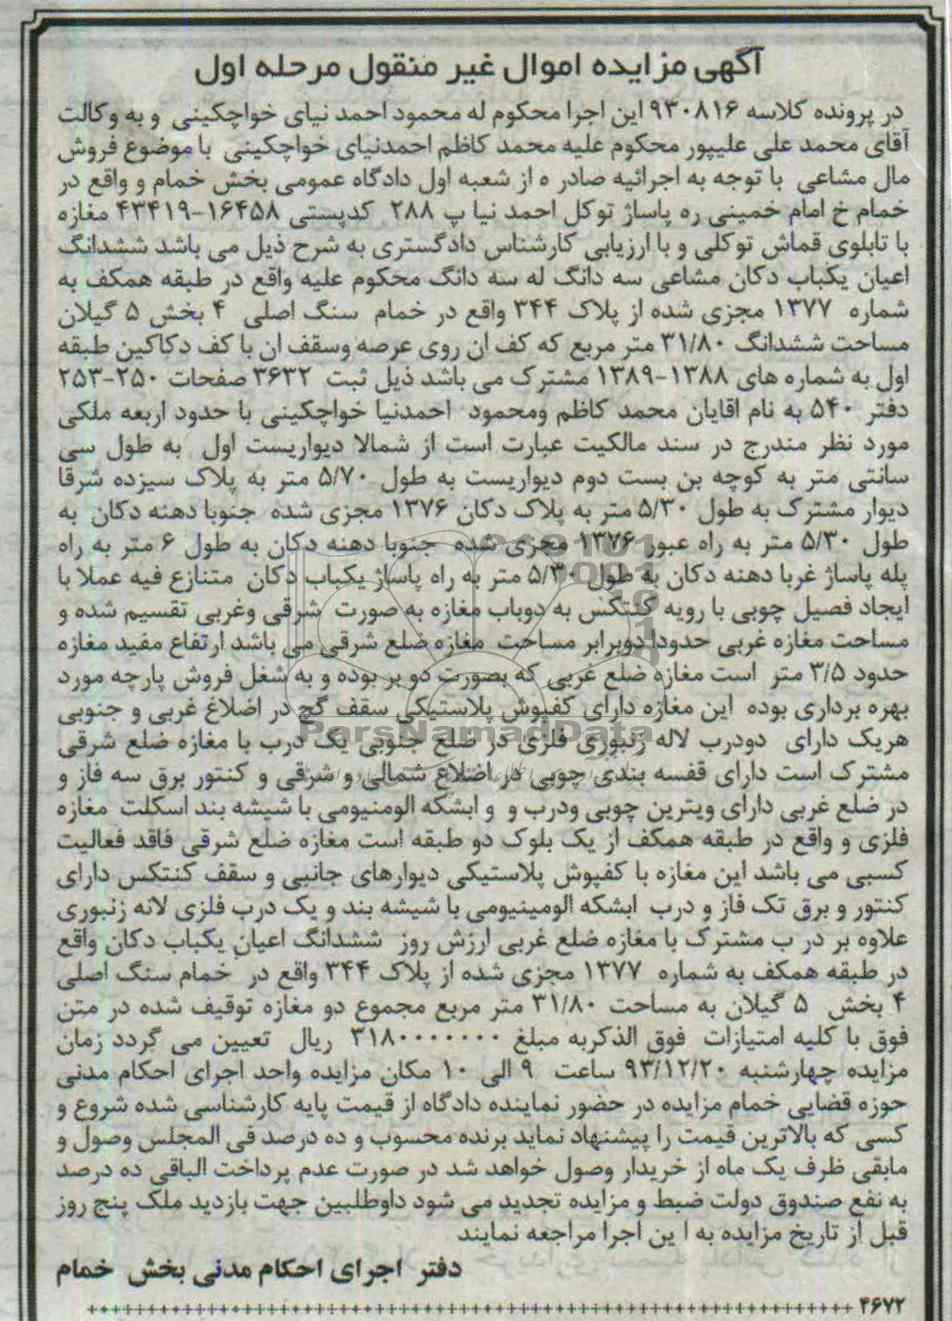 آگهی مزایده اموال غیر منقول مرحله اول
در پرونده کلاسه ۹۳۰۸۱۶ این اجرا محکوم له محمود احمد نیای خواچکینی و به وکالت
آقای محمد علی علیپور محکوم علیه محمد کاظم احمدنیای خواچکینی با موضوع فروش
مال مشاعی با توجه به اجرائیه صادر ه از شعبه اول دادگاه عمومی بخش خمام و واقع در
خمام خ امام خمینی ره پاساژ توکل احمد نیا پ ۲۸۸ کدپستی ۱۶۴۵۸-۴۳۴۱۹ مغازه
با تابلوی قماش توکلی و با ارزیابی کارشناس دادگستری به شرح ذیل می باشد ششدانگ
اعیان یکباب دکان مشاعی سه دانگ له سه دانگ محکوم علیه واقع در طبقه همکف به
شماره ۱۳۷۷ مجزی شده از پلاک ۳۴۴ واقع در خمام سنگ اصلی ۴ بخش ۵ گیلان
مساحت ششدانگ ۳۱/۸۰ متر مربع که کف ان روی عرصه وسقف ان با کف دکاکین طبقه
اول به شماره های ۱۳۸۸-۱۳۸۹ مشترک می باشد ذیل ثبت ۳۶۳۲ صفحات ۲۵۰-۲۵۳
دفتر ۵۴۰ به نام اقایان محمد کاظم ومحمود احمدنیا خواچکینی با حدود اربعه ملکی
مورد نظر مندرج در سند مالکیت عبارت است از شمالا دیواریست اول به طول سی
سانتی متر به کوچه بن بست دوم دیواریست به طول ۵/۷۰ متر به پلاک سیزده شرقا
دیوار مشترک به طول ۵/۳۰ متر به پلاک دکان ۱۳۷۶ مجزی شده جنوبا دهنه دکان به
طول ۵/۳۰ متر به راه عبور ۱۳۷۶ مجزی شده جنوبا دهنه دکان به طول ۶ متر به راه
پله پاساژ غربا دهنه دکان به طول ۵/۳۰ متر به راه پاساژ یکباب دکان متنازع فیه عملا با
ایجاد فصیل چوبی با رویه کنتکس به دوباب مغازه به صورت شرقی وغربی تقسیم شده و
مساحت مغازه غربی حدودا دوبرابر مساحت مغازه ضلع شرقی می باشد ارتفاع مفید مغازه
حدود ۳/۵ متر است مغازه ضلع غربی که بصورت دو بر بوده و به شغل فروش پارچه مورد
بهره برداری بوده این مغازه دارای کفپوش پلاستیکی سقف گچ در اضلاع غربی و جنوبی
هریک دارای دودرب لاله زنبوری فلزی در ضلع جنوبی یک درب با مغازه ضلع شرقی
مشترک است دارای قفسه بندی چوبی در اضلاع شمالی و شرقی و کنتور برق سه فاز و
در ضلع غربی دارای ویترین چوبی ودرب و و ابشکه الومنیومی با شیشه بند اسکلت مغازه
فلزی و واقع در طبقه همکف از یک بلوک دو طبقه است مغازه ضلع شرقی فاقد فعالیت
کسبی می باشد این مغازه با کفپوش پلاستیکی دیوارهای جانبی و سقف کنتکس دارای
کنتور و برق تک فاز و درب ابشکه الومینیومی با شیشه بند و یک درب فلزی لانه زنبوری
علاوه بر در ب مشترک با مغازه ضلع غربی ارزش روز ششدانگ اعیان یکباب دکان واقع
در طبقه همکف به شماره ۱۳۷۷ مجزی شده از پلاک ۳۴۴ واقع در خمام سنگ اصلی
۴ بخش ۵ گیلان به مساحت ۳۱/۸۰ متر مربع مجموع دو مغازه توقیف شده در متن
فوق با کلیه امتیازات فوق الذکربه مبلغ ۳۱۸۰۰۰۰۰۰۰ ریال تعیین می گردد زمان
مزایده چهارشنبه ۹۳/۱۲/۲۰ ساعت ۹ الی ۱۰ مکان مزایده واحد اجرای احکام مدنی
حوزه قضایی خمام مزایده در حضور نماینده دادگاه از قیمت پایه کارشناسی شده شروع و
کسی که بالاترین قیمت را پیشنهاد نماید برنده محسوب و ده درصد فی المجلس وصول و
مابقی ظرف یک ماه از خریدار وصول خواهد شد در صورت عدم پرداخت الباقی ده درصد
به نفع صندوق دولت ضبط و مزایده تجدید می شود داوطلبین جهت بازدید ملک پنج روز
قبل از تاریخ مزایده به ا ین اجرا مراجعه نمایند
دفتر اجرای احکام مدنی بخش خمام
۴۶۷۲
ParsNamadData